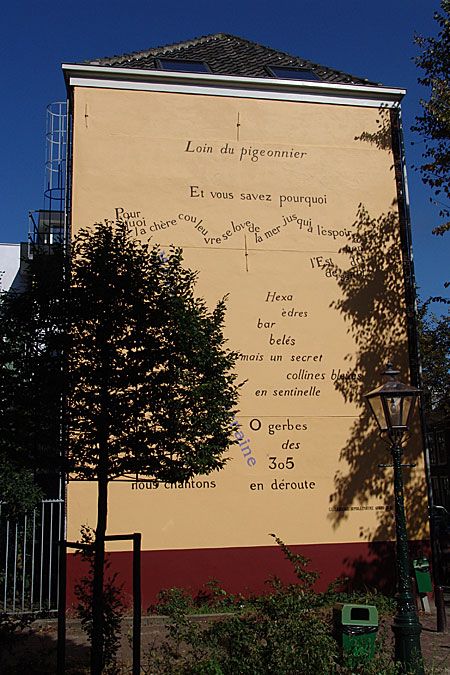 Loin du pigeonnier
Et vous savez pourquoi
Pour
quoi
la chère couleu
vre se love de
la mer jusqu
à l'espoir
l'Es
Hexa
èdres
bar
belés
mais un secret
collines bleues
en sentinelle
O gerbes
des
305
nous chantons en déroute